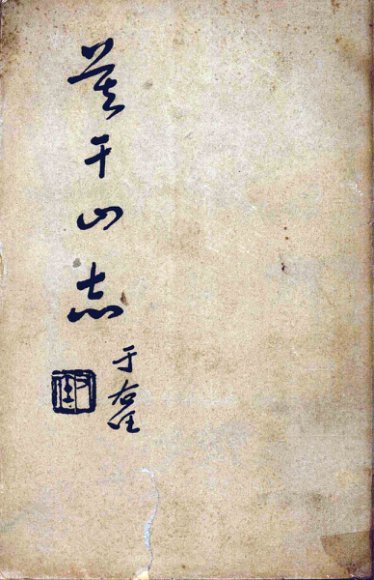 莫干山志
于右任